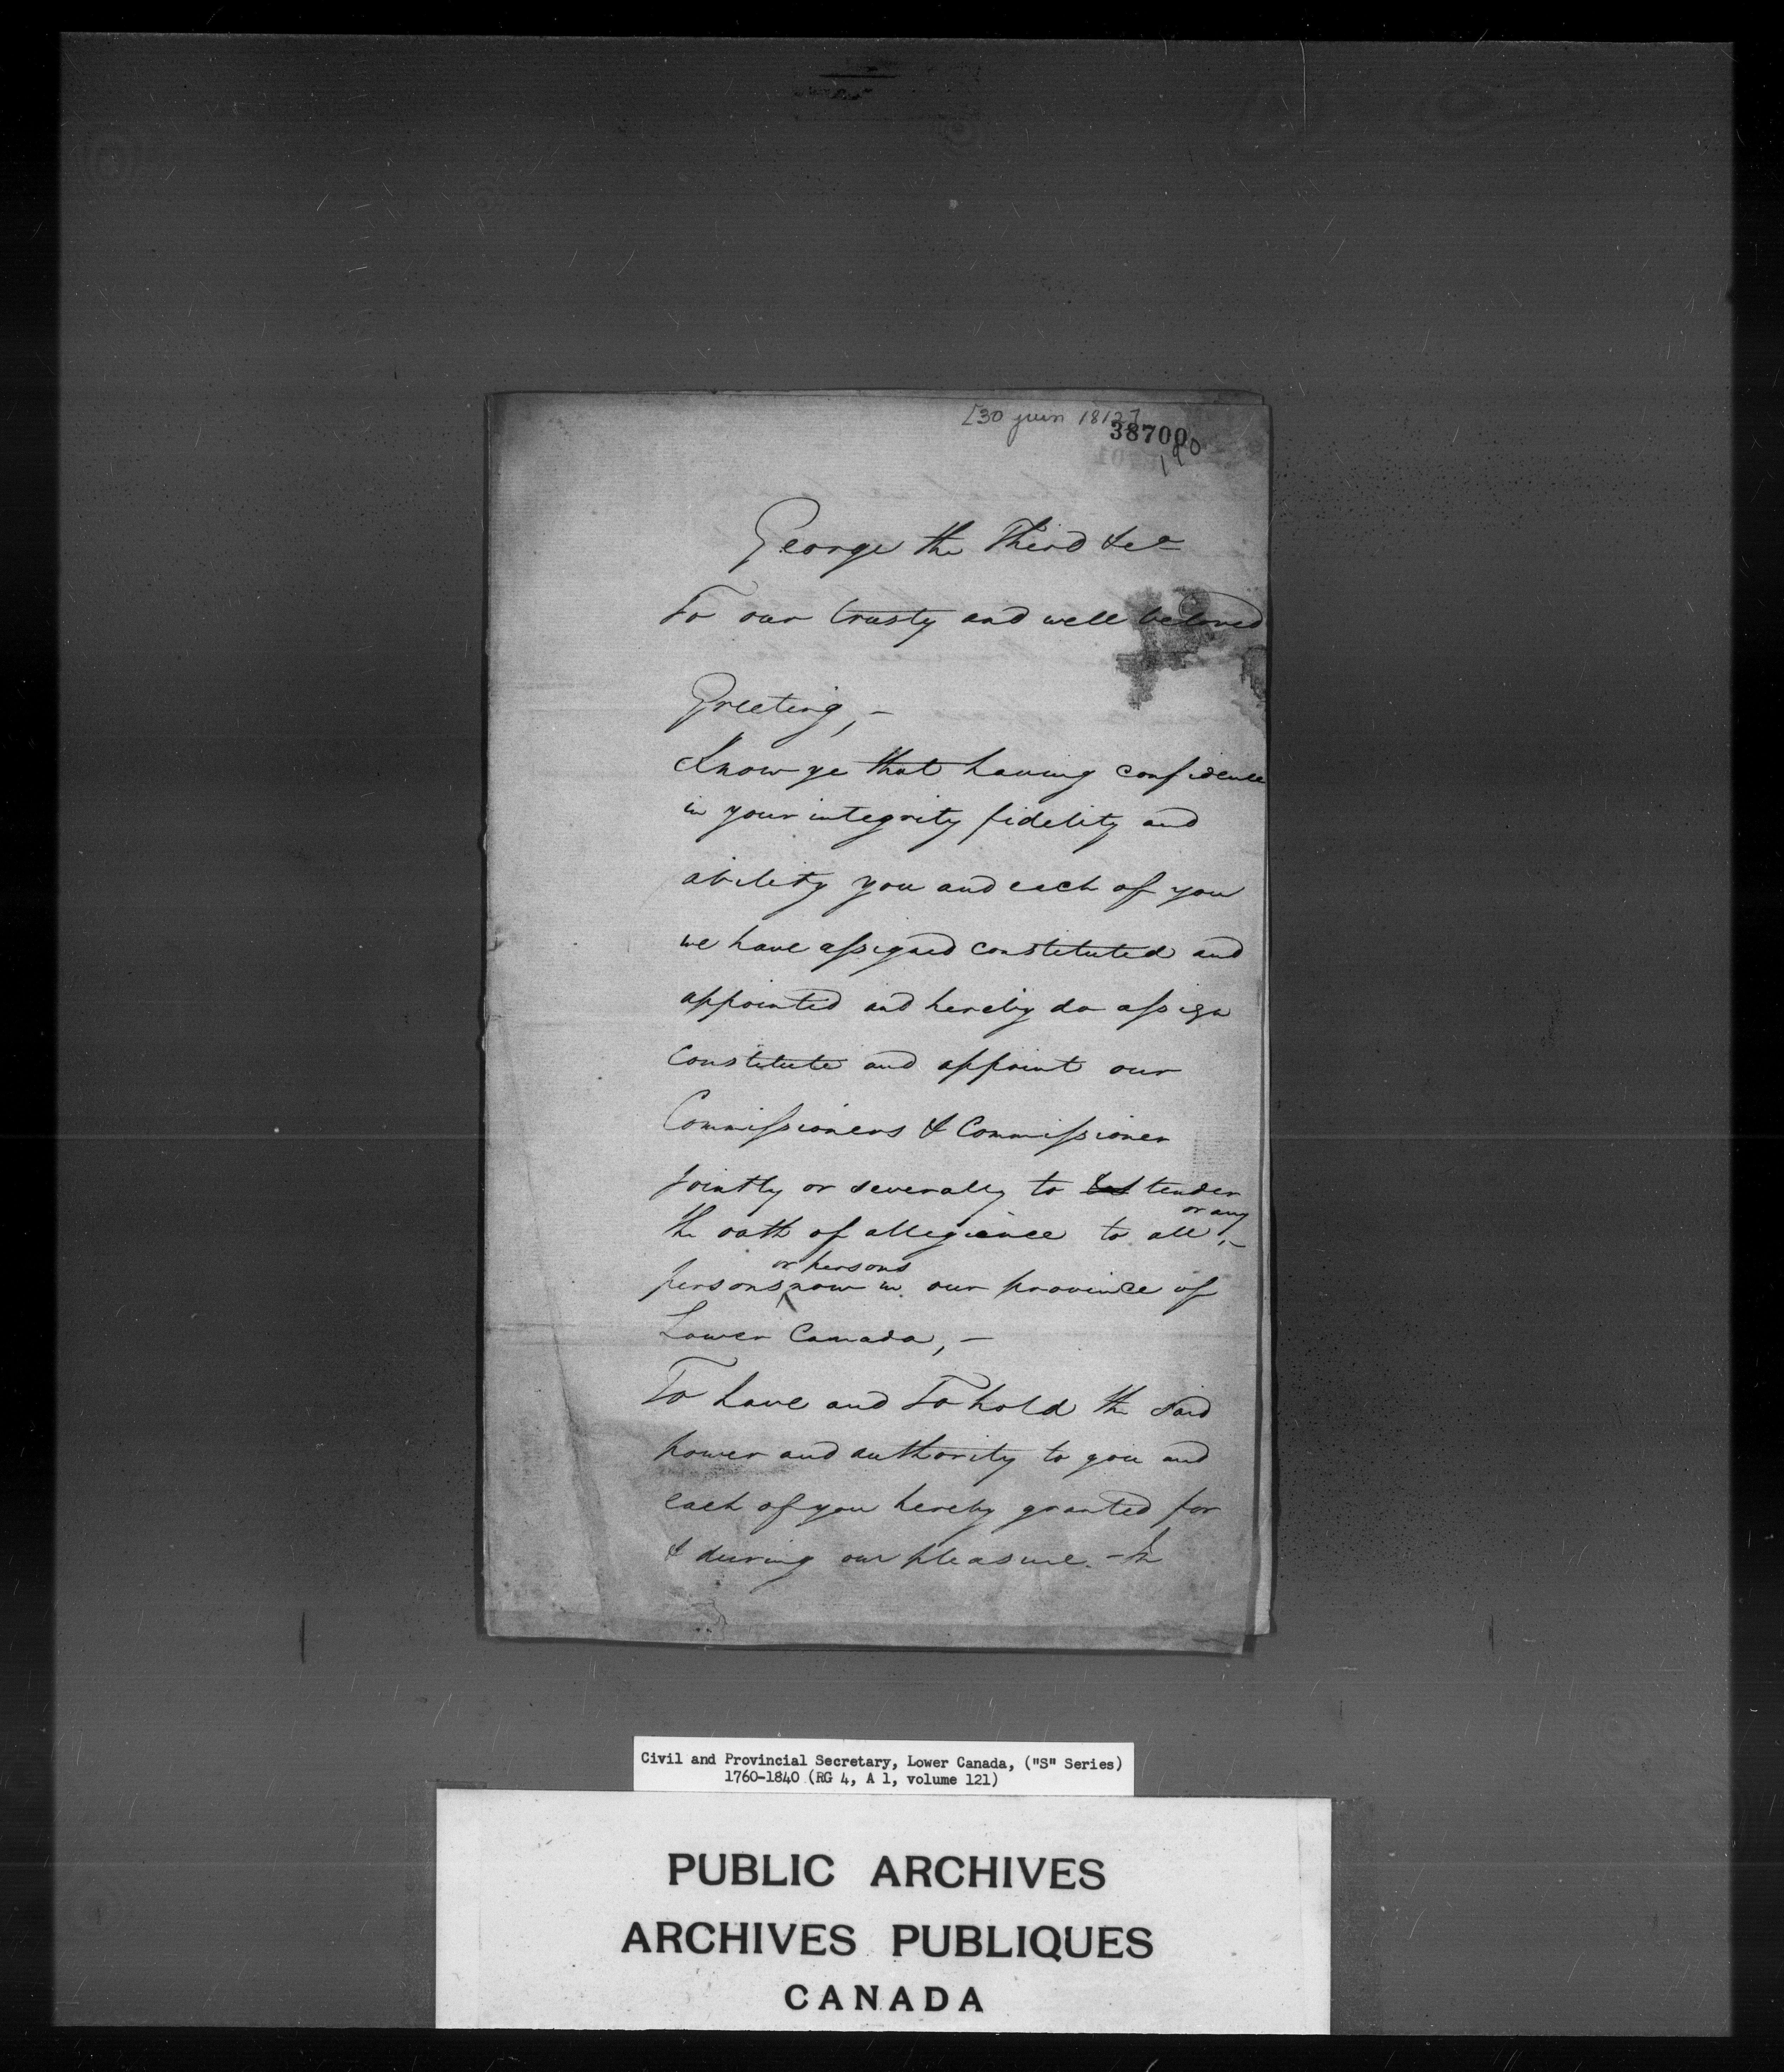 [30 juin 1812]
38700
190
George the Third &ca
To our trusty and well beloved
Greeting, –
Know ye that having confidence
in your integrity fidelity and
ability you and each of you
we have assigned constituted and
appointed and hereby do assign
constitute and appoint our
Commissioners & Commissioner
jointly or severally to tender
or any
the oath of allegiance to all, –
or persons
persons now in our province of
Lower Canada, –
To have and To hold the said
power and authority to you and
each of you hereby granted for
& during our pleasure. – In
Civil and Provincial Secretary, Lower Canada, ("S" Series)
1760-1840 (RG 4, A 1, volume 121)
PUBLIC ARCHIVES
ARCHIVES PUBLIQUES
CANADA